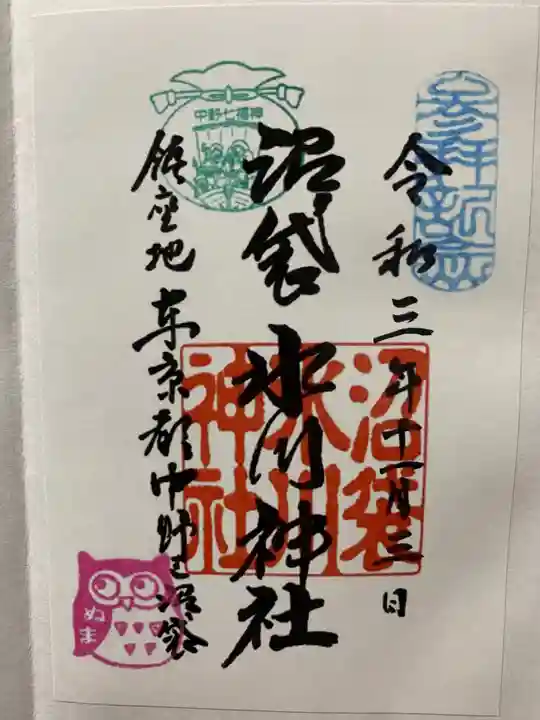 参拝記念
令和三年十一月三日
沼袋氷川神社
沼袋
氷川
神社
中野七福神
鎮座地 東京都中野区沼袋
ぬま